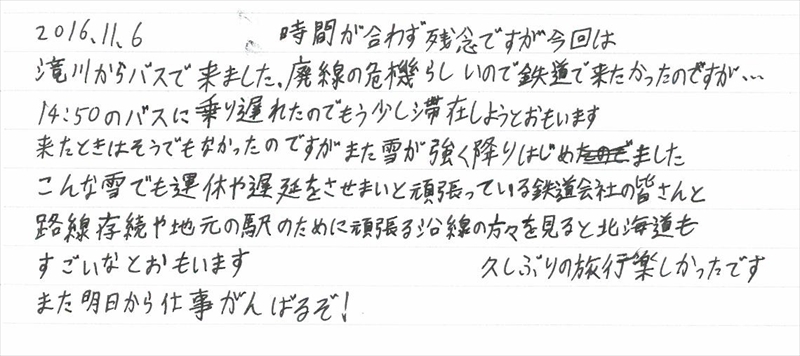 2016.11.6 時間が合わず残念ですが今回は
滝川からバスで来ました。廃線の危機らしいので鉄道で来たかったのですが…
14:50のバスに乗り遅れたのでもう少し滞在しようとおもいます
来たときはそうでもなかったのですがまた雪が強く降りはじめました
こんな雪でも運休や遅延をさせまいと頑張っている鉄道会社の皆さんと
路線存続や地元の駅のために頑張る沿線の方々を見ると北海道も
すごいなとおもいます 久しぶりの旅行楽しかったです
また明日から仕事がんばるぞ!